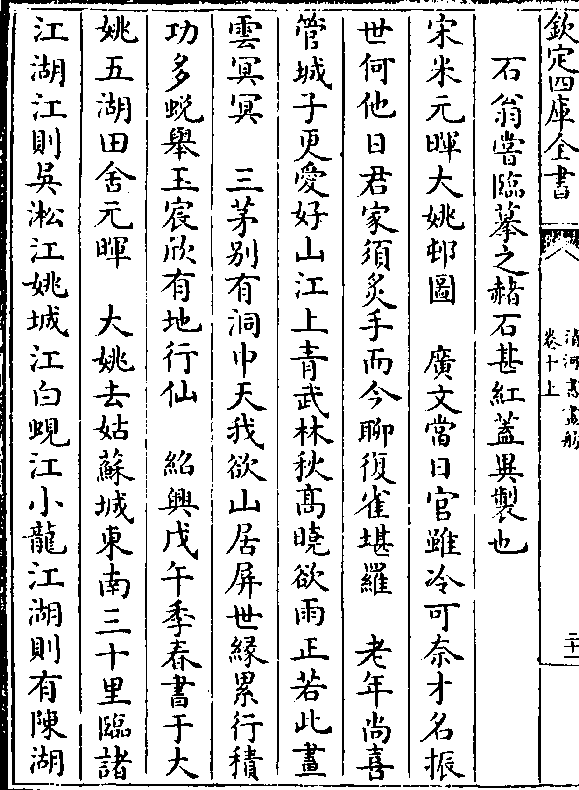 欽定四庫全書
清河書畫舫
卷十上
二十一
石翁嘗臨摹之赭石甚紅蓋異製也
宋米元暉大姚邨圖　廣文當日官雖冷可奈才名振
世何他日君家須炙手而今聊復雀堪羅　老年尚喜
管城子更愛好山江上青武林秋髙曉欲雨正若此畫
雲冥冥　三茅别有洞中天我欲山居屏世縁累行積
功多蛻舉玉宸欣有地行仙　紹興戊午季春書于大
姚五湖田舍元暉　大姚去姑蘇城東南三十里臨諸
江湖江則吳淞江姚城江白蜆江小龍江湖則有陳湖